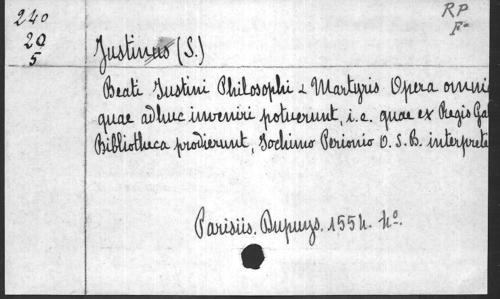 240
20
5
RP
F-
Justinus (S.)
Beati Justini Philosophi & Martyris Opera omni
quae adhuc inveniri potuerunt, i.e. quae ex Regis Gal
Bibliotheca prodierunt, Joachimo Perionio O.S.B. interprete
Parisiis. Dupuys. 1554. 4º.